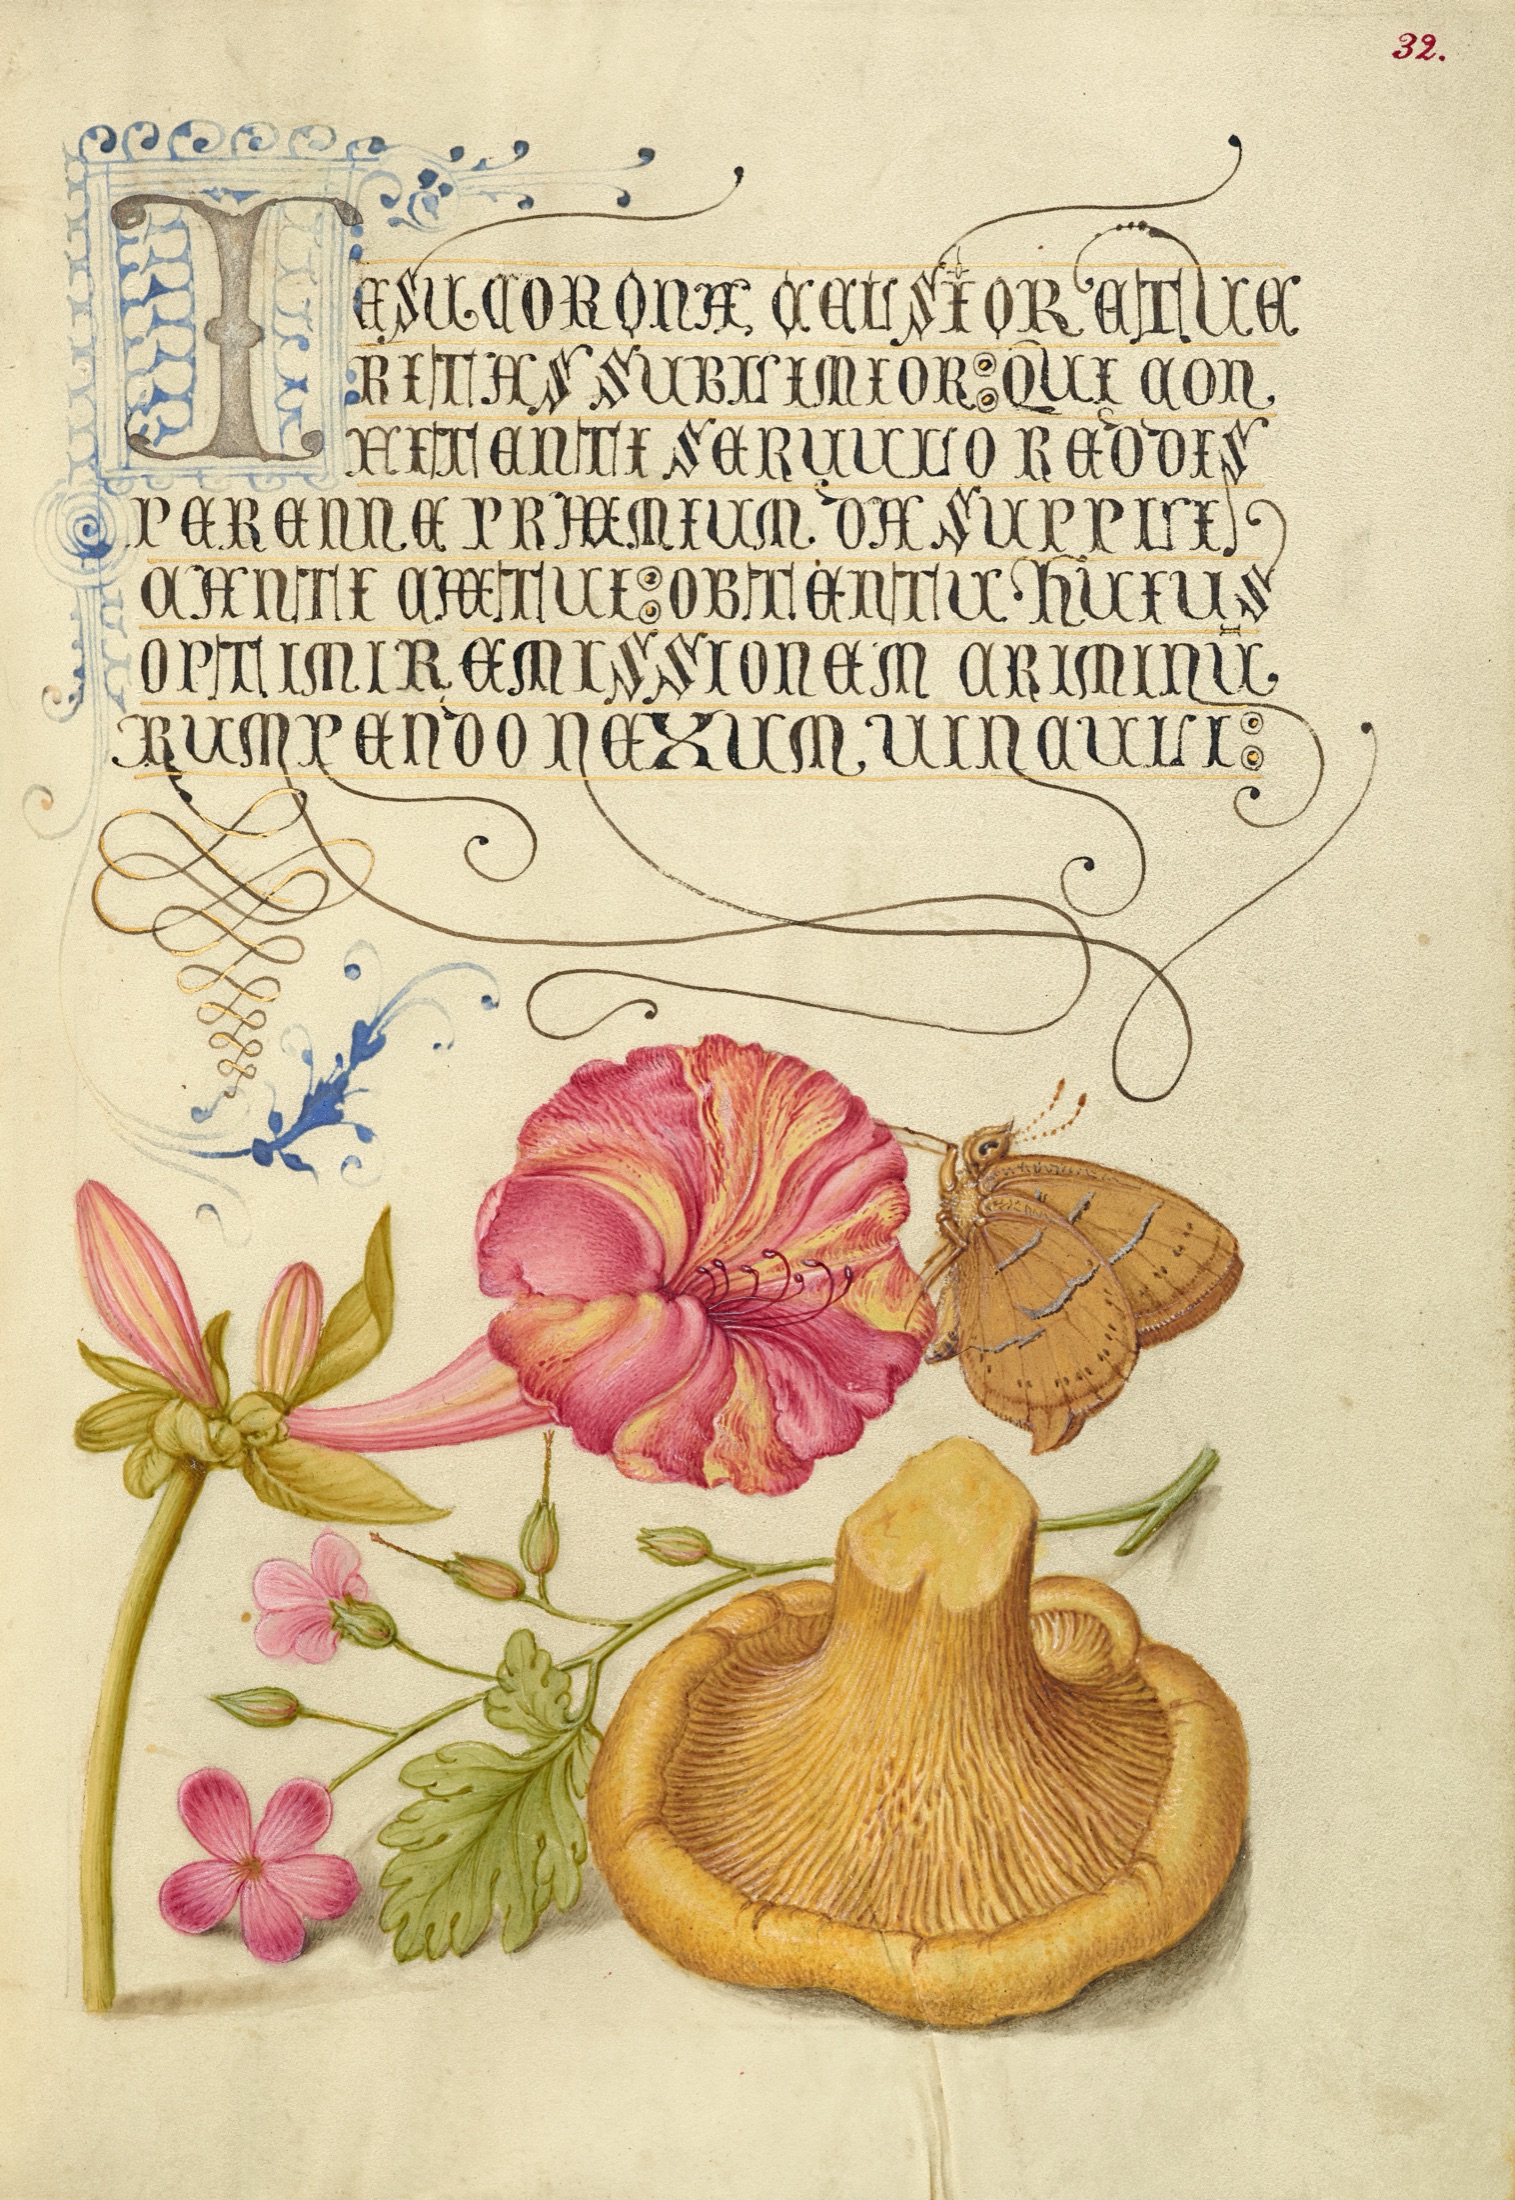 32.
IESU CORONÆ CELSIOR ET VE
RITAS SUBLIMIOR: QUI CON
FITENTI SERVULO REDDIS
PERENNE PRÆMIUM. DA SUPPLI
CANTI CÆTUI: OBTENTU HUIUS
OPTIMI REMISSIONEM CRIMINU
RUMPENDO NEXUM VINCULI: